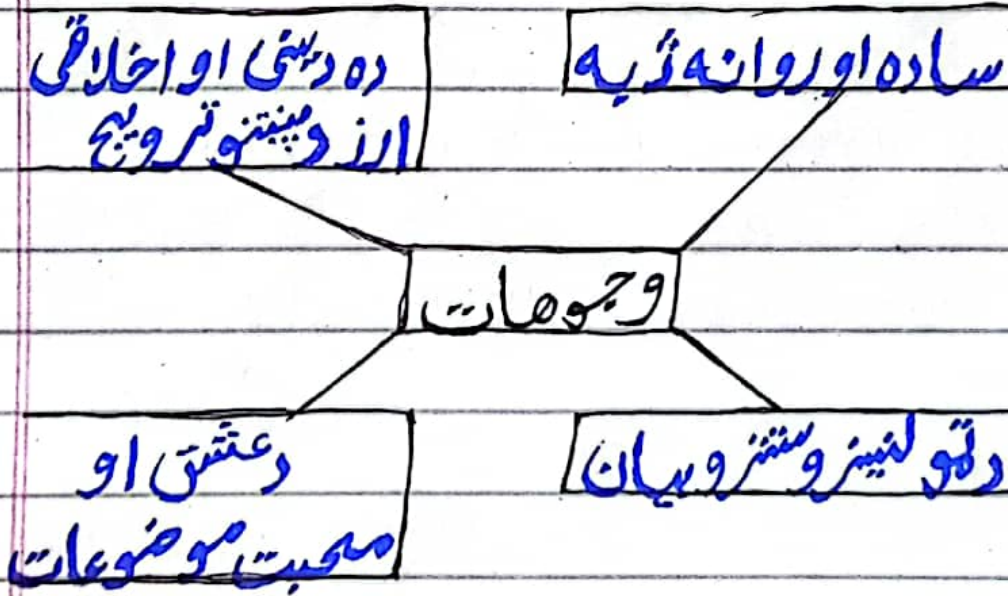 ساده او روانه ژبه
ده دیني او اخلاقي
ارزښتنو ترویج
وجوهات
د ټولنیزو ستنزو بیان
د عشق او
محبت موضوعات